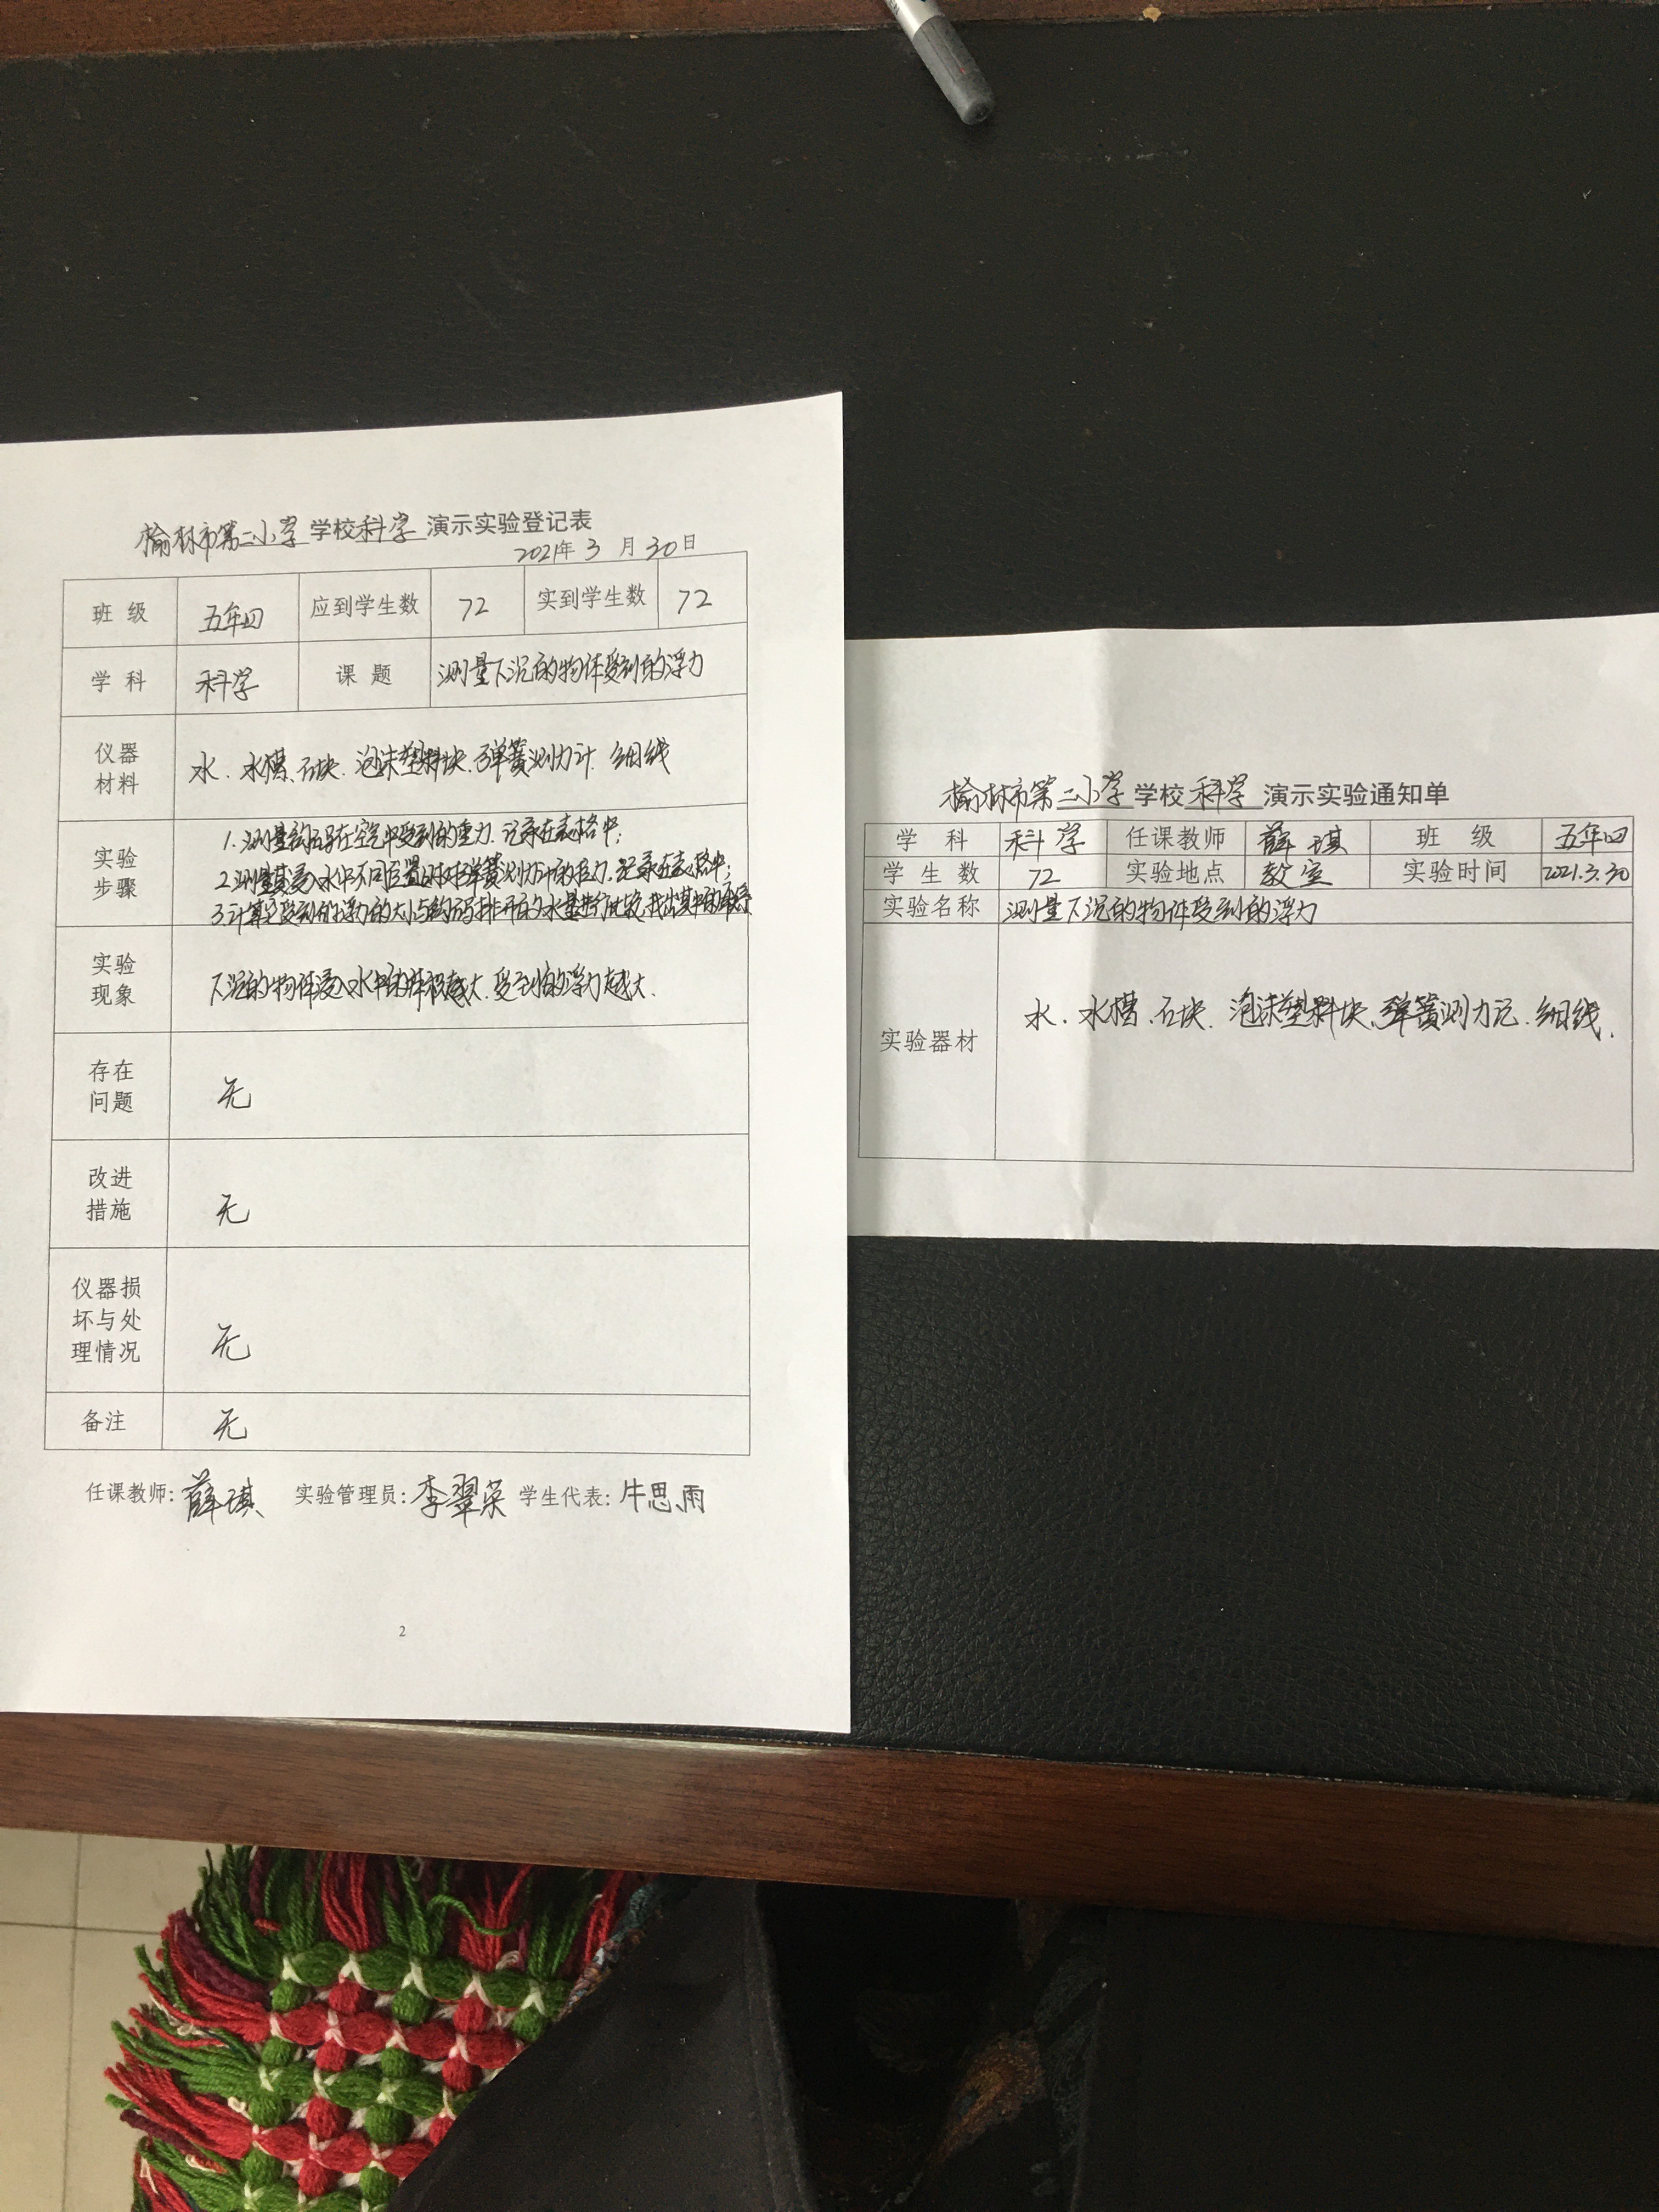 榆林市第二小学 学校 科学 演示实验登记表
2021年 3 月 30 日
班 级 五年四 应到学生数 72 实到学生数 72
学 科 科学 课 题 测量下沉的物体受到的浮力
仪器材料 水、水槽、石块、泡沫塑料块、弹簧测力计、细线
实验步骤
1.测量钩码在空气中受到的重力,记录在表格中;
2.测量其浸入水中不同位置时对弹簧测力计的拉力,记录在表格中;
3.计算它受到的浮力的大小与钩码排开的水量进行比较,找出其中的
实验现象 下沉的物体浸入水中的体积越大,受到的浮力越大.
存在问题 无
改进措施 无
仪器损坏与处理情况 无
备注 无
任课教师:薛琪 实验管理员:李翠荣 学生代表:牛思雨
2
榆林市第二小学 学校 科学 演示实验通知单
学 科 科学 任课教师 薛琪 班 级 五年四
学 生 数 72 实验地点 教室 实验时间 2021.3.30
实验名称 测量下沉的物体受到的浮力
实验器材 水、水槽、石块、泡沫塑料块、弹簧测力记、细线.